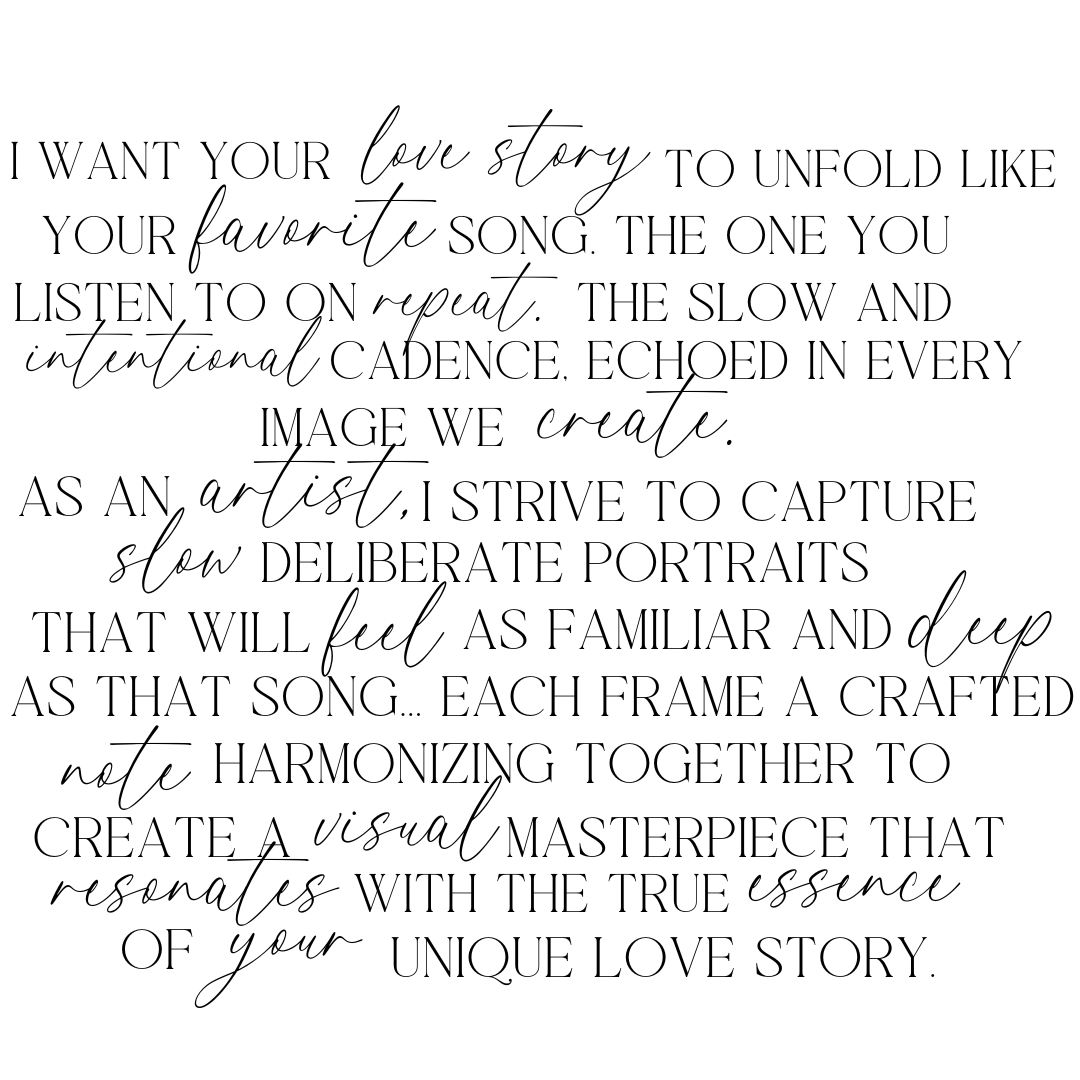 I WANT YOUR love story TO UNFOLD LIKE
YOUR favorite SONG. THE ONE YOU
LISTEN TO ON repeat. THE SLOW AND
intentional CADENCE, ECHOED IN EVERY
IMAGE WE create.
AS AN artist, I STRIVE TO CAPTURE
slow DELIBERATE PORTRAITS
THAT WILL feel AS FAMILIAR AND deep
AS THAT SONG... EACH FRAME A CRAFTED
note HARMONIZING TOGETHER TO
CREATE A visual MASTERPIECE THAT
resonates WITH THE TRUE essence
OF your UNIQUE LOVE STORY.